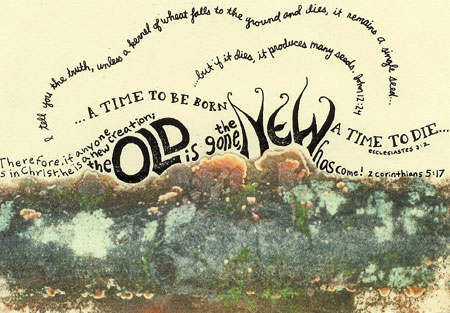 I tell you the truth, unless a kernel of wheat falls to the ground and dies, it remains a single seed...
...but if it dies, it produces many seeds. John 12:24
...A TIME TO BE BORN
A TIME TO DIE...
ECCLESIASTES 3:2
Therefore, if anyone
is in Christ, he is a new creation;
the OLD is gone the NEW has come! 2 corinthians 5:17